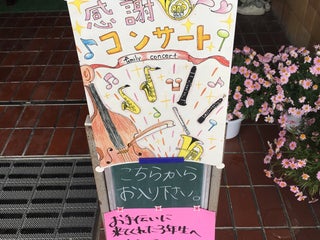 感謝
コンサート
family concert
こちらから
お入り下さい。
お手伝いに
来てくれた3年生へ